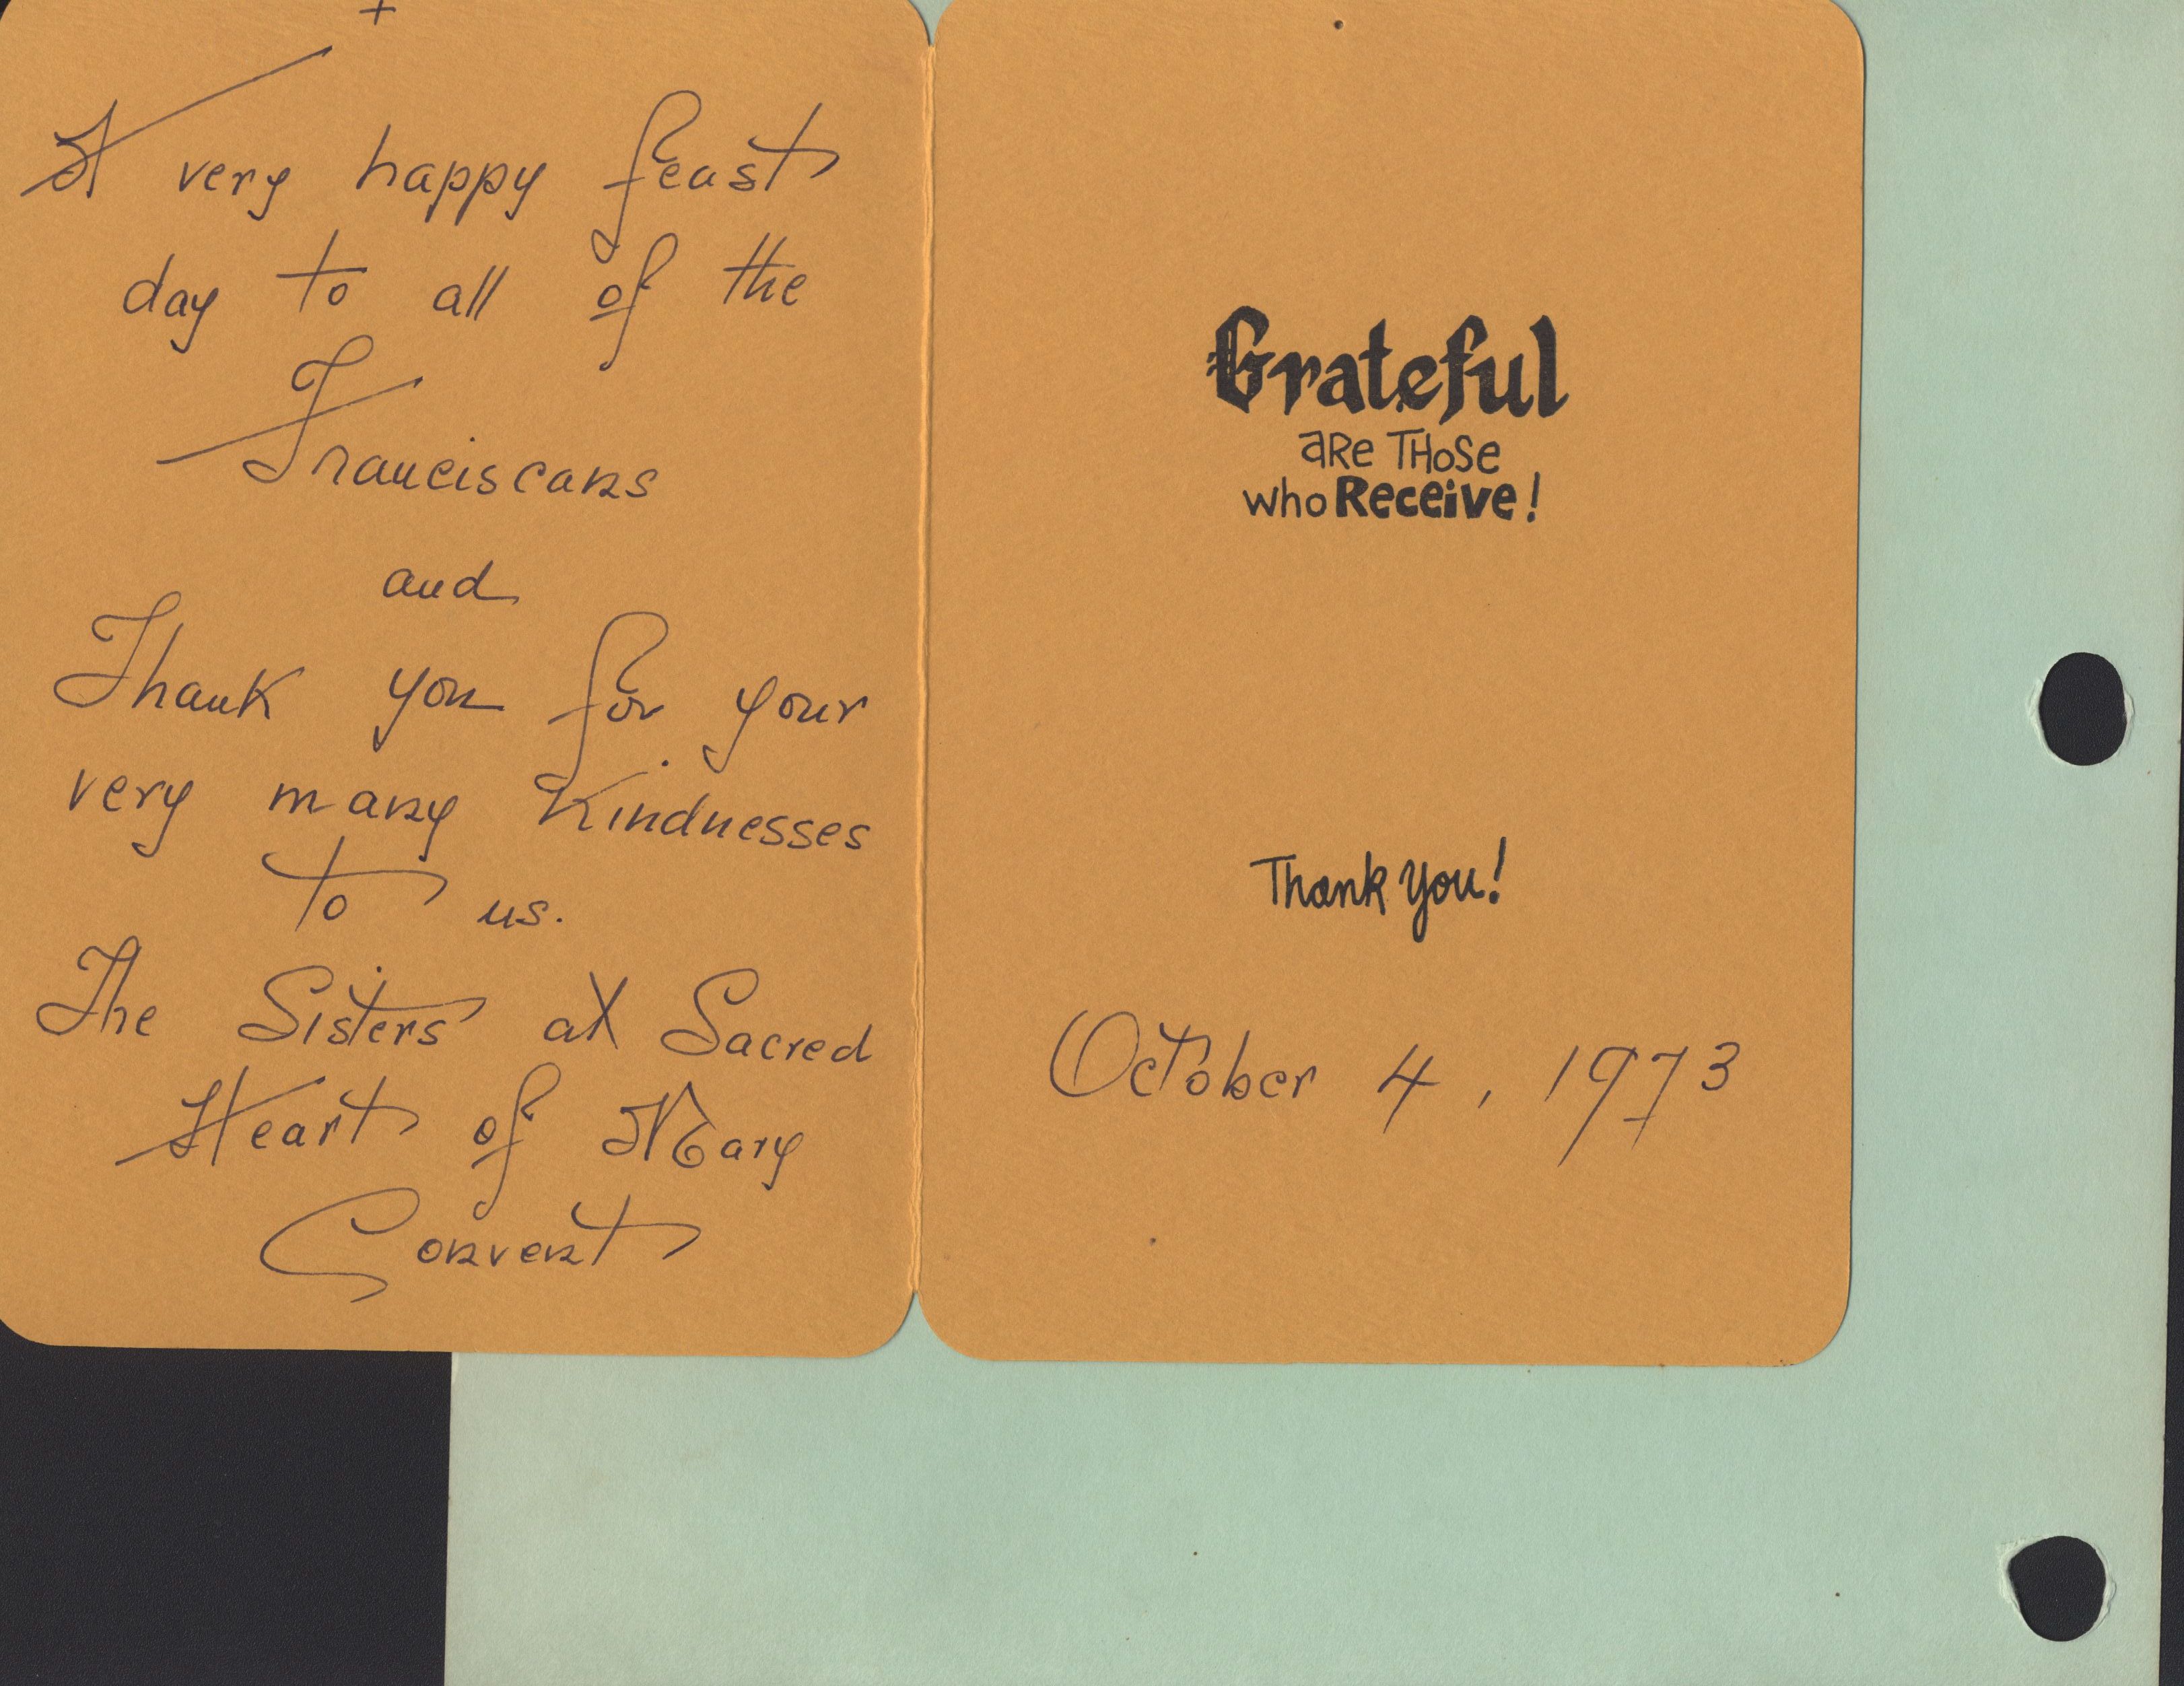 +
A very happy feast
day to all of the
Franciscans
and
Thank you for your
very many kindnesses
to us.
The Sisters at Sacred
Heart of Mary
Convent
Grateful
aRe THoSe
who Receive!
Thank You!
October 4, 1973